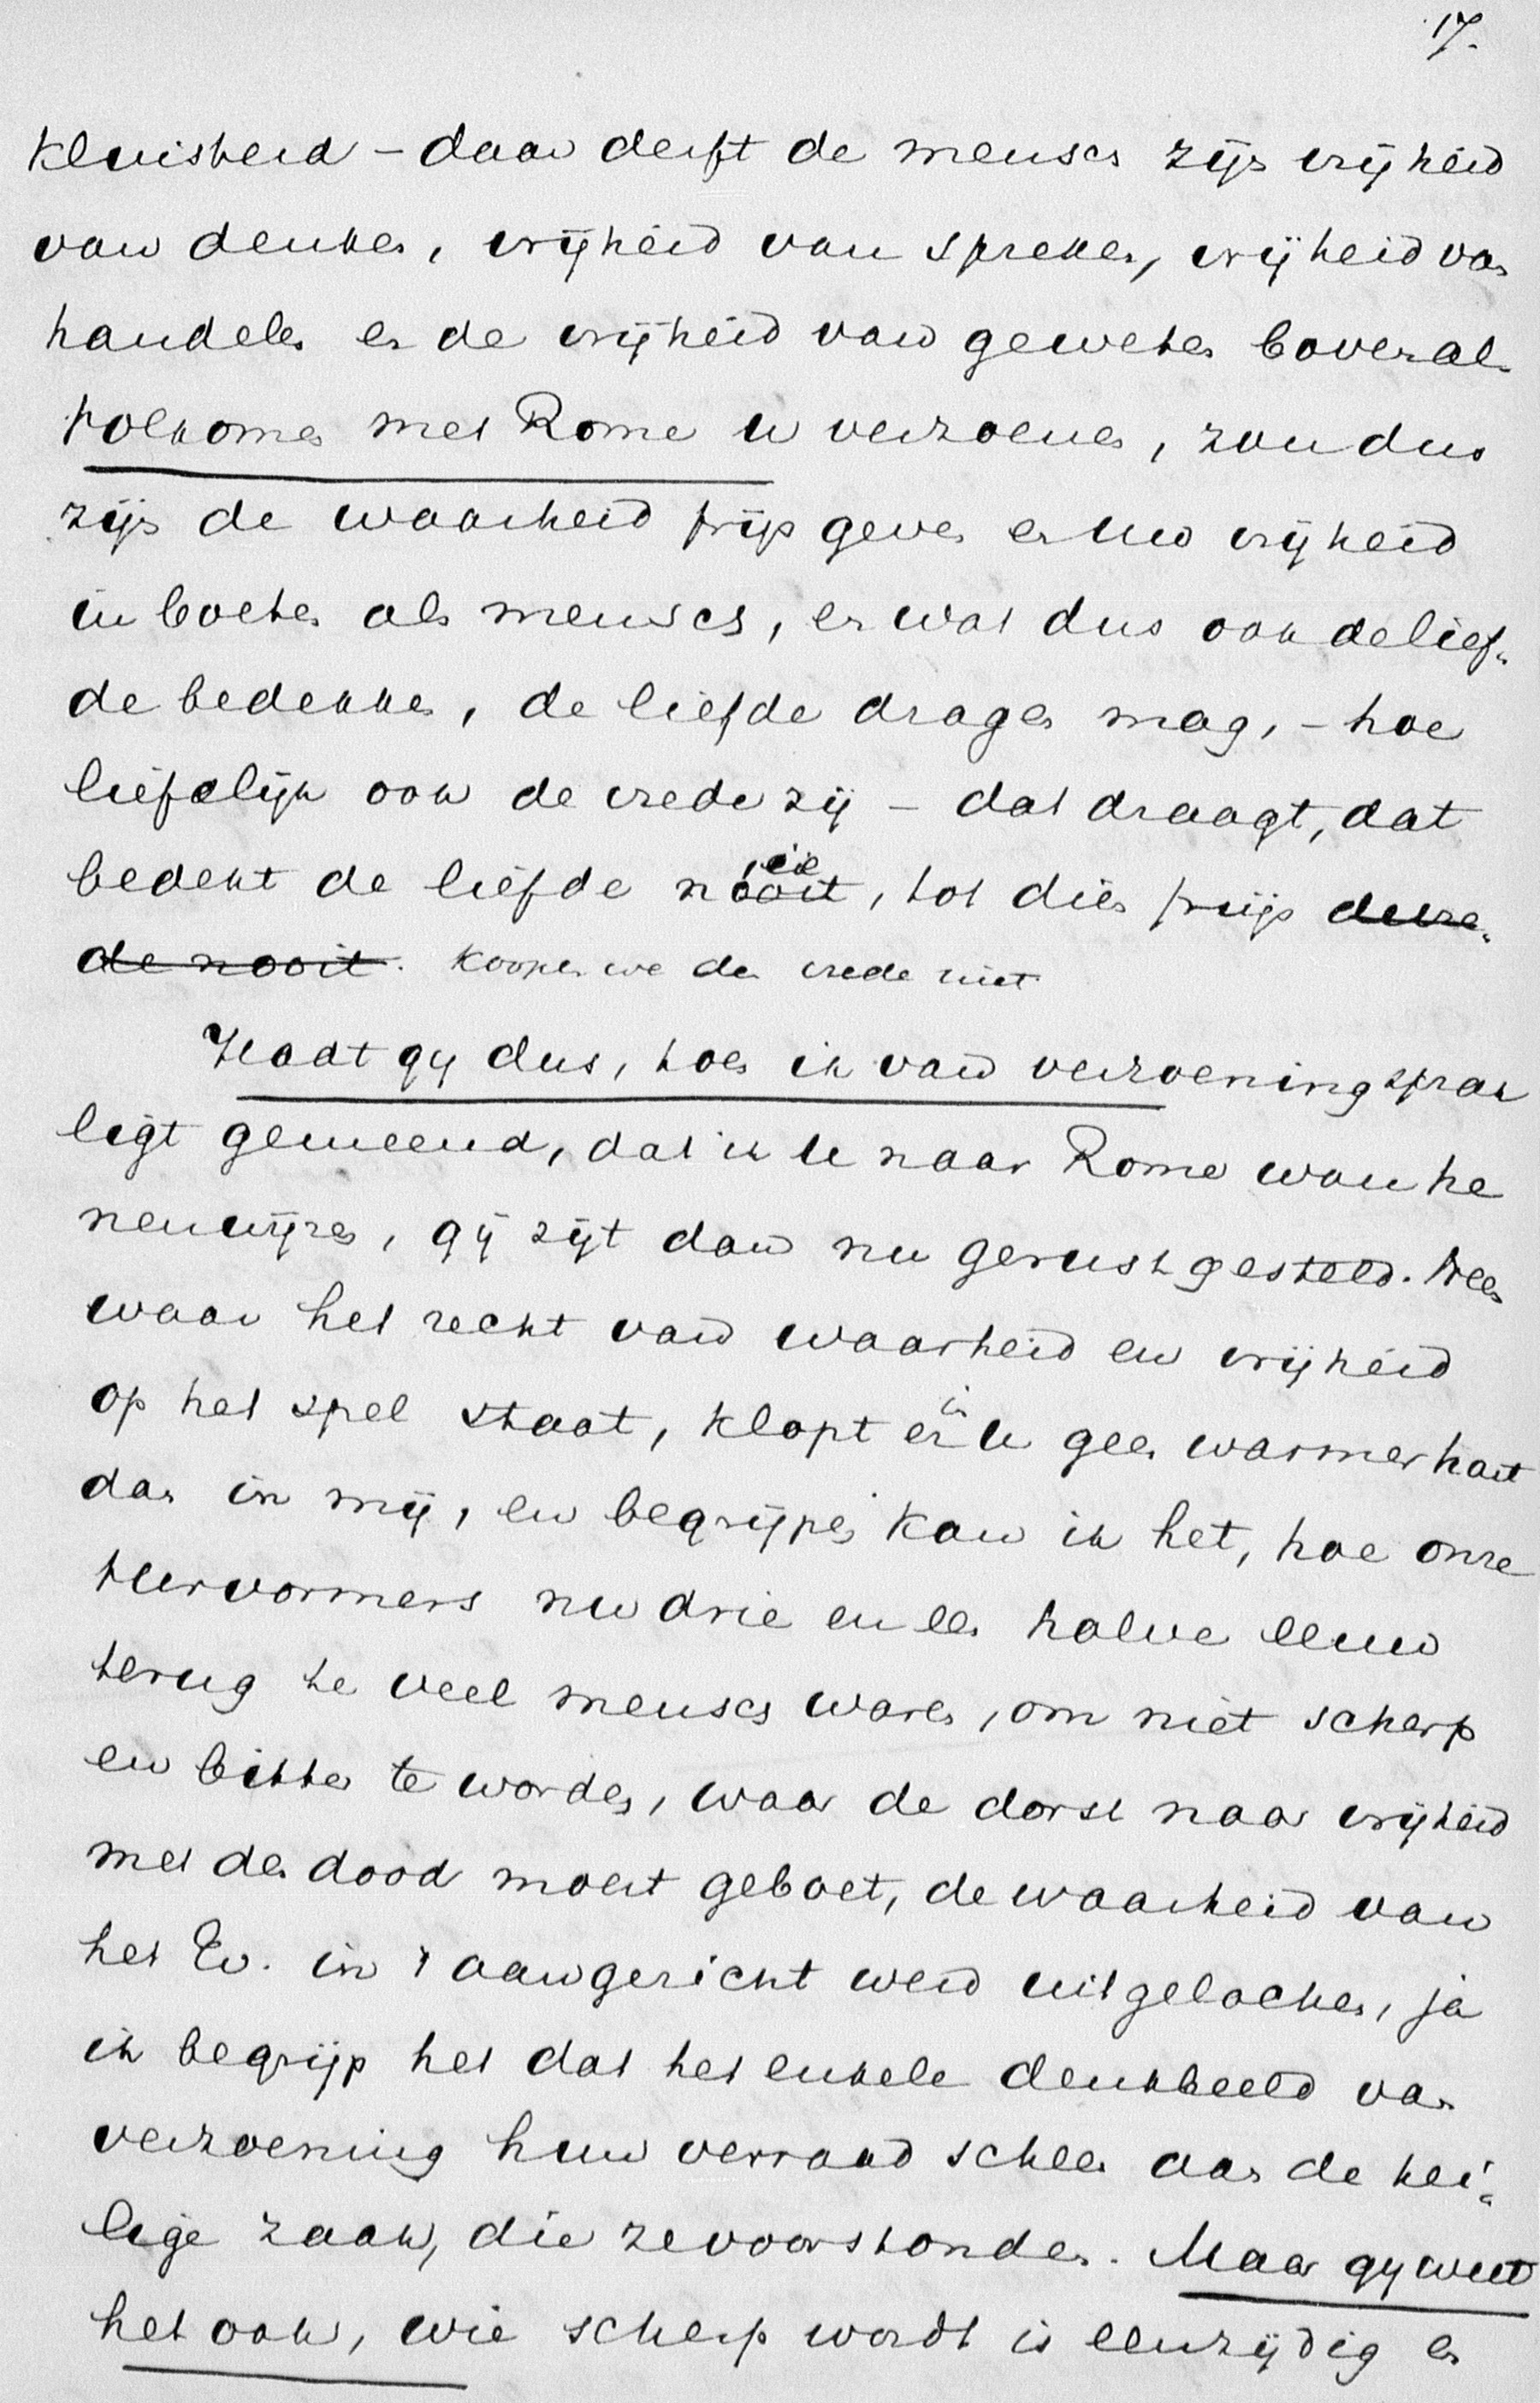 17.
kluisterd – daar derft de mensch zijn vrijheid
van denken, vrijheid van spreken, vrijheid van
handelen en de vrijheid van geweten bovenal.
Volkomen met Rome u verzoenen, zou dus
zijn de waarheid prijs geven en uw vrijheid
in boeten als mensch, en wat dus ook de lief-
de bedekken, de liefde dragen mag, – hoe
liefelijk ook de vrede zij – dat draagt, dat
bedekt de liefde niet, tot dien prijs de vre-
de nooit. Koopen we den vrede niet
Hadt gij dus, toen ik van verzoening sprak
ligt gemeend, dat ik u naar Rome wou he
nenwijzen, gij zijt dan nu gerustgesteld. Neen
waar het recht van waarheid en vrijheid
op het spel staat, klopt er in u geen warmer hart
dan in mij, en begrijpen kan ik het, hoe onze
Hervormers nu drie en een halve eeuw
terug te veel mensch waren, om niet scherp
en bitter te worden, waar de dorst naar vrijheid
met den dood moest geboet, de waarheid van
het Ev. in 't aangezicht werd uitgelachen, ja
ik begrijp het dat het enkele denkbeeld van
verzoening hun verraad scheen aan de hei-
lige zaak, die ze voorstonden. Maar gij weet
het ook, wie scherp wordt is eenzijdig en